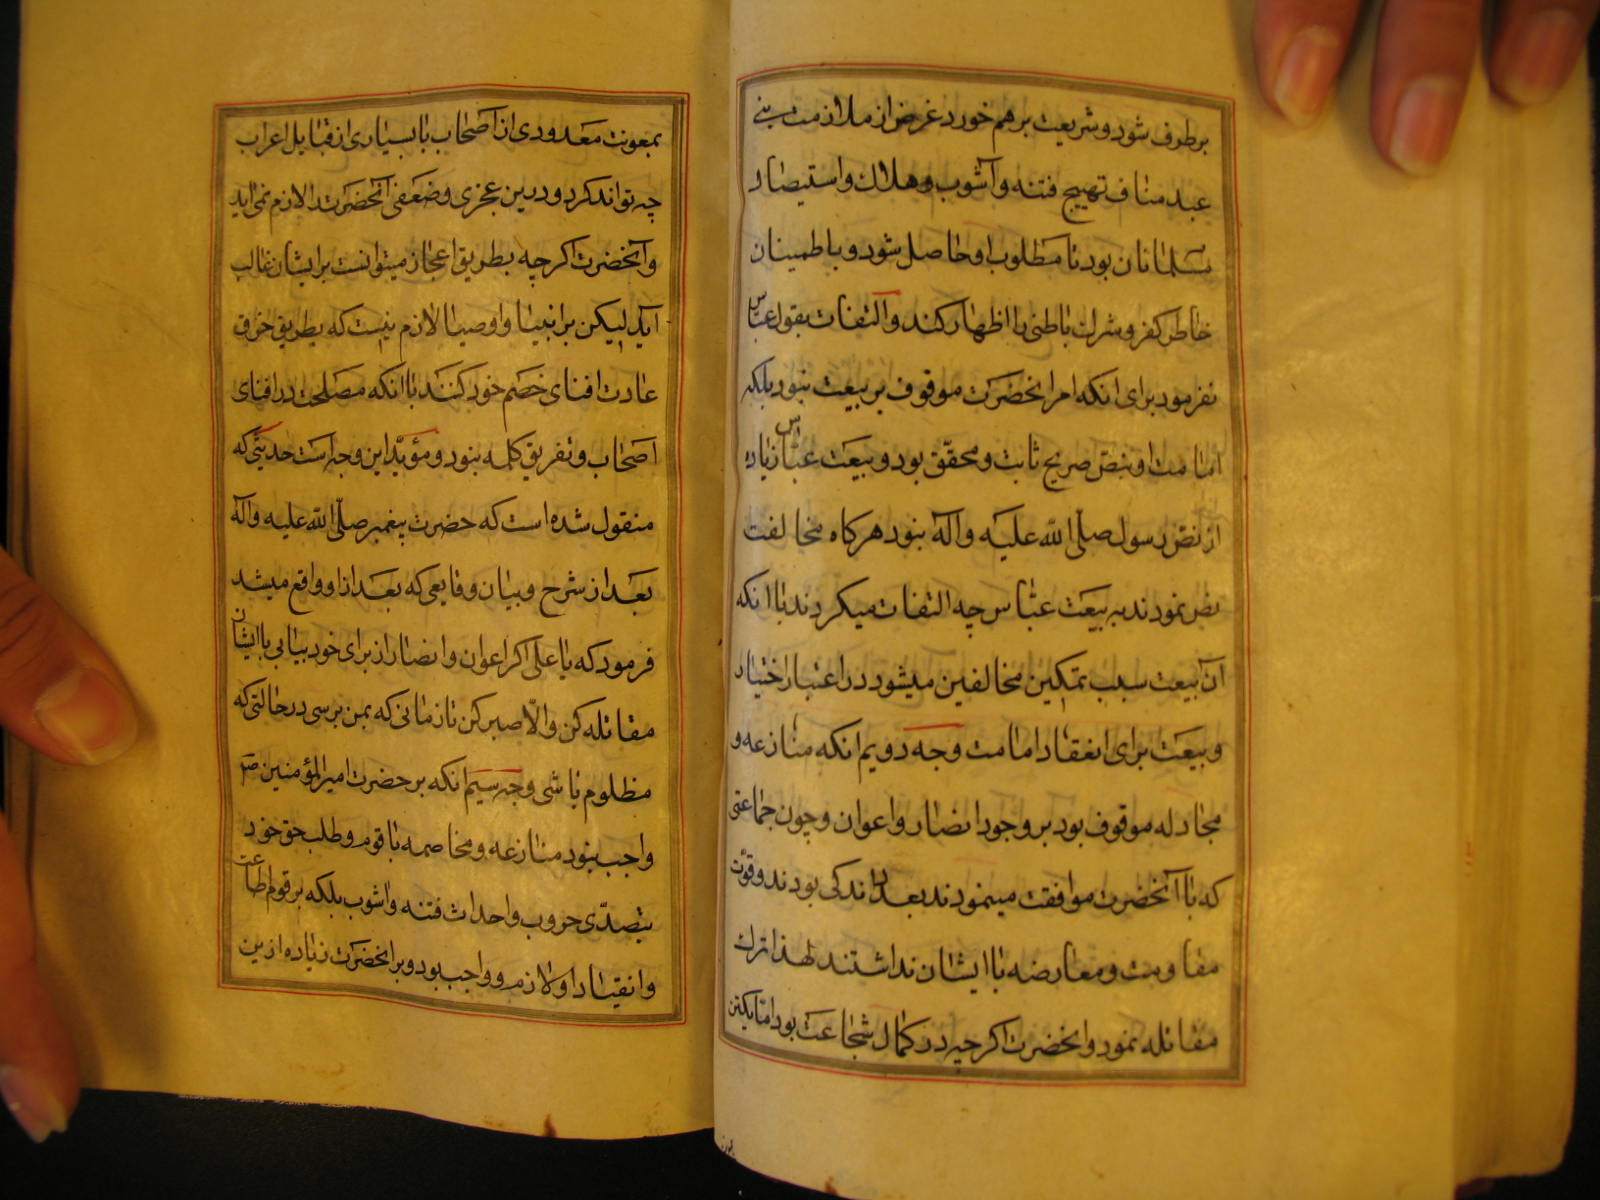 برطرف شود و شریعت برهم خورد غرض از ملازمت بنی
عبد مناف تهییج فتنه و آشوب و هلاک و استیصال
مسلمانان بود تا مطلوب او حاصل شود و باطمینان
خاطر کفر و شرک باطنی را اظهار کند و التفات بقول عباس
نفرمود برای انکه امر انحضرت موقوف بر بیعت نبود بلکه
امامت او بنص صریح ثابت و محقق بود و بیعت عباس زیاده
از نص رسول صلّی الله علیه و آله نبود هرکاه مخالفت
نص نمودند به بیعت عباس چه التفات میکردند با انکه
آن بیعت سبب تمکین مخالفین میشود در اعتبار اختیار
و بیعت برای انعقاد امامت وجه دویم انکه منازعه و
مجادله موقوف بود بر وجود انصار و اعوان و چون جماعتی
که با آنحضرت موافقت مینمودند بعدد اندکی بودند و قوّت
مقاومت و معارضه با ایشان نداشتند لهذا ترک
مقاتله نمود و انحضرت اکرچه در کمال شجاعت بود اما یکتن
بمعونت معدودی از اصحاب با بسیاری از قبایل اعراب
چه تواند کرد و درین عجزی و ضعفی آنحضرت را لازم نمی اید
و آنحضرت اکرچه بطریق اعجاز میتوانست بر ایشان غالب
آید لیکن بر انبیا و اوصیا لازم نیست که بطریق خرق
عادت افنای خصم خود کنند با انکه مصلحت در افنای
اصحاب و تفریق کلمه نبود و مؤیّد این وجه است حدیثی که
منقول شده است که حضرت پیغمبر صلّی الله علیه و آله
بعد از شرح و بیان وقایعی که بعد از او واقع میشد
فرمود که یا علی اکر اعوان و انصار از برای خود بیابی با ایشان
مقاتله کن و الّا صبر کن تا زمانی که بمن برسی در حالتی که
مظلوم باشی وجه سیم انکه بر حضرت امیر المؤمنین
واجب نبود منازعه و مخاصمه با قوم و طلب حق خود
بتصدّی حروب و احداث فتنه و اشوب بلکه بر قوم اطاعت
و انقیاد او لازم و واجب بود و بر انحضرت زیاده ازین